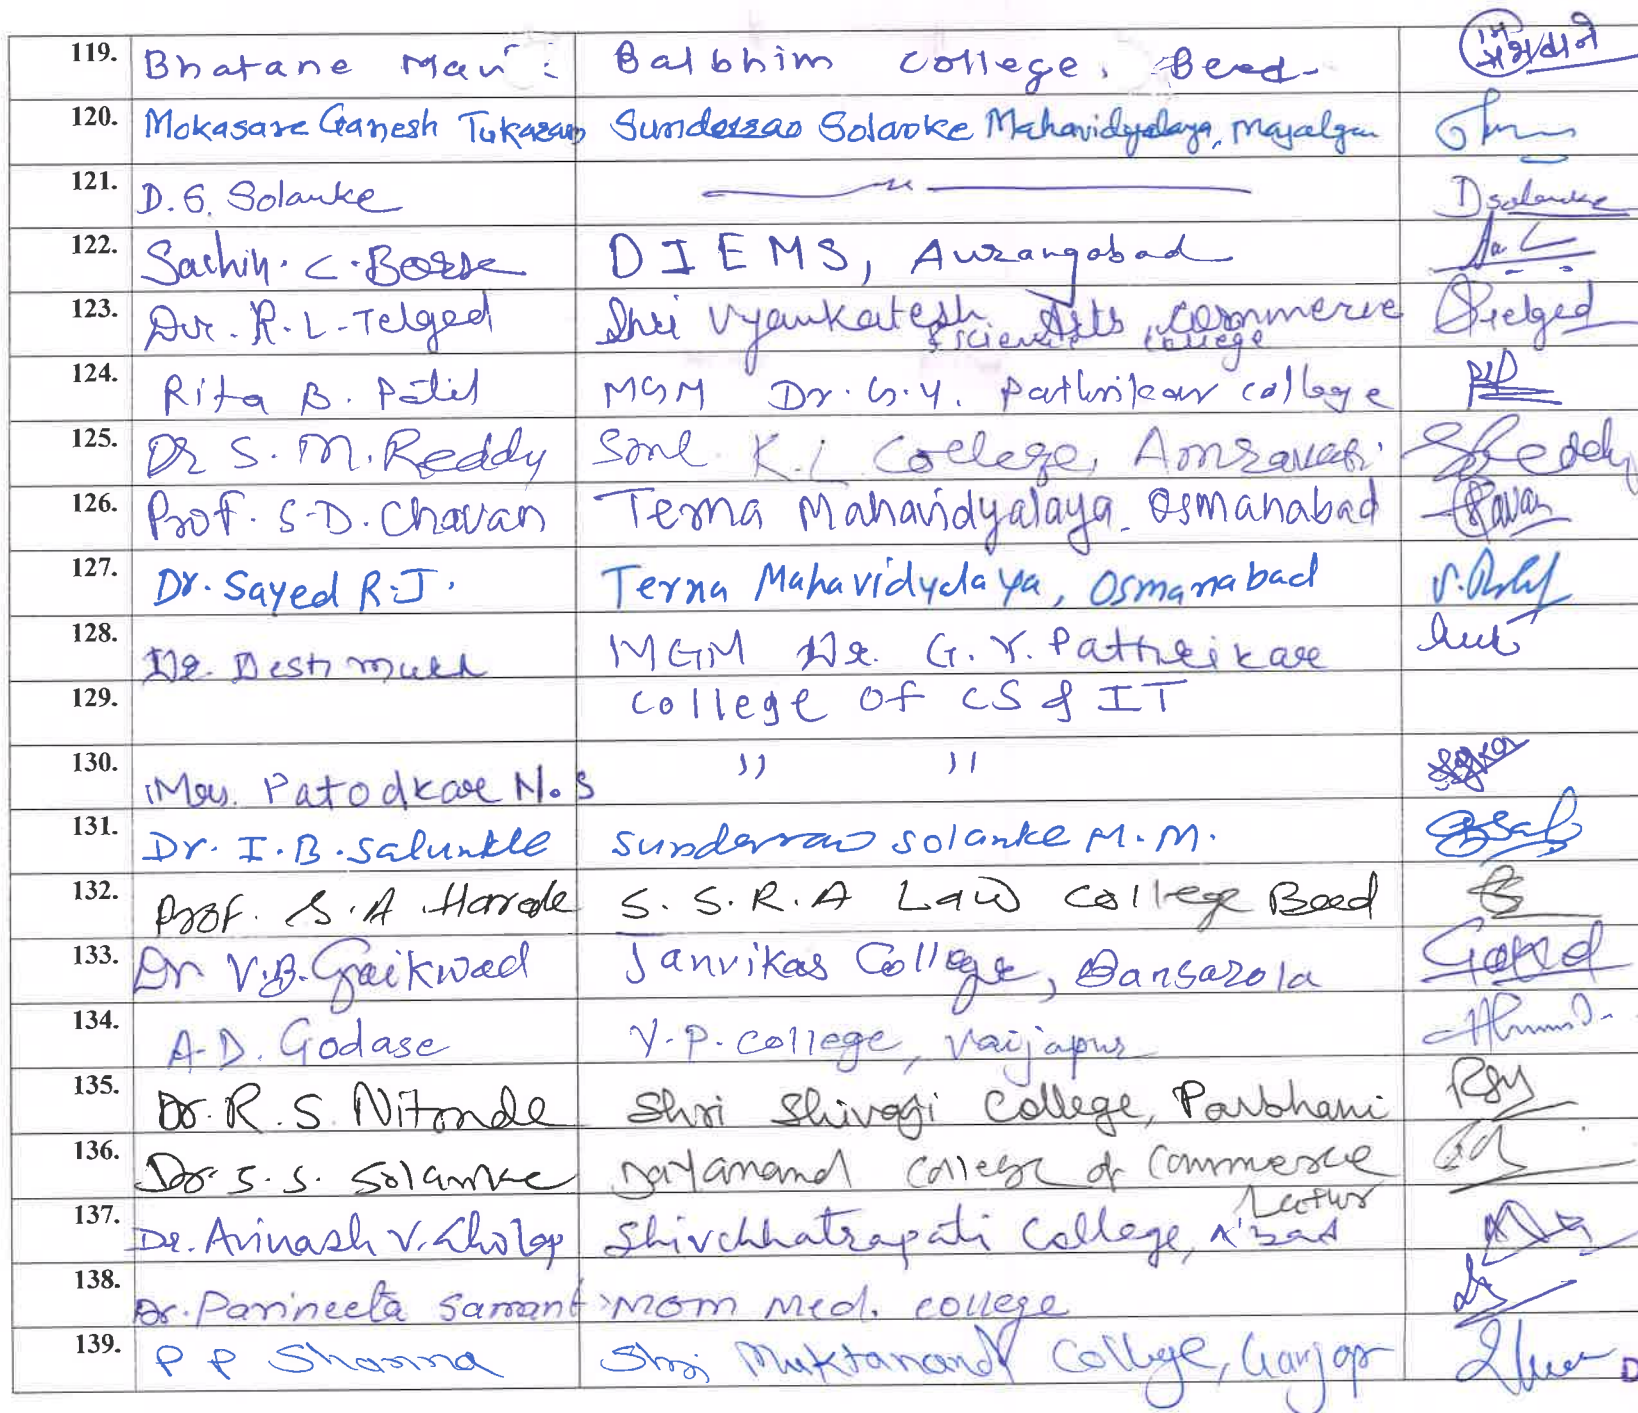 119. Bhatane Balbhim College, Beed
120. Mokasare Ganesh Tukaram Sunderrao Solanke Mahavidyalaya, Majalgaon
121. D. G. Solanke — " —
122. Sachin. C. Borse DIEMS, Aurangabad
123. Dr. R. L. Telged Shri Vyankatesh Arts, Commerce
& Science College
124. Rita B. Patil MGM Dr. G. Y. Pathrikar college
125. Dr S. M. Reddy Smt. K. L College, Amravati.
126. Prof. S. D. Chavan Terna Mahavidyalaya Osmanabad
127. Dr. Sayed R. J. Terna Mahavidyalaya, Osmanabad
128. Dr. Deshmukh MGM Dr. G. Y. Pathrikar
129. College of CS & IT
130. Mrs. Patodkar N. S " "
131. Dr. I. B. Salunkhe Sunderrao Solanke M. M.
132. Prof. S. A. S. S. R. A Law College Beed
133. Dr V. B. Gaikwad Janvikas College, Bansarola
134. A. D. Godase V. P. College, Vaijapur
135. Dr. R. S. Nitonde Shri Shivaji College, Parbhani
136. Dr. S. S. Solanke Dayanand College of Commerce
Latur
137. Dr. Avinash V. Gholap Shivchhatrapati College, A'bad
138. Dr. Parineeta Samant MGM Med. College
139. P P Sharma Shri Muktanand College, Gangapur